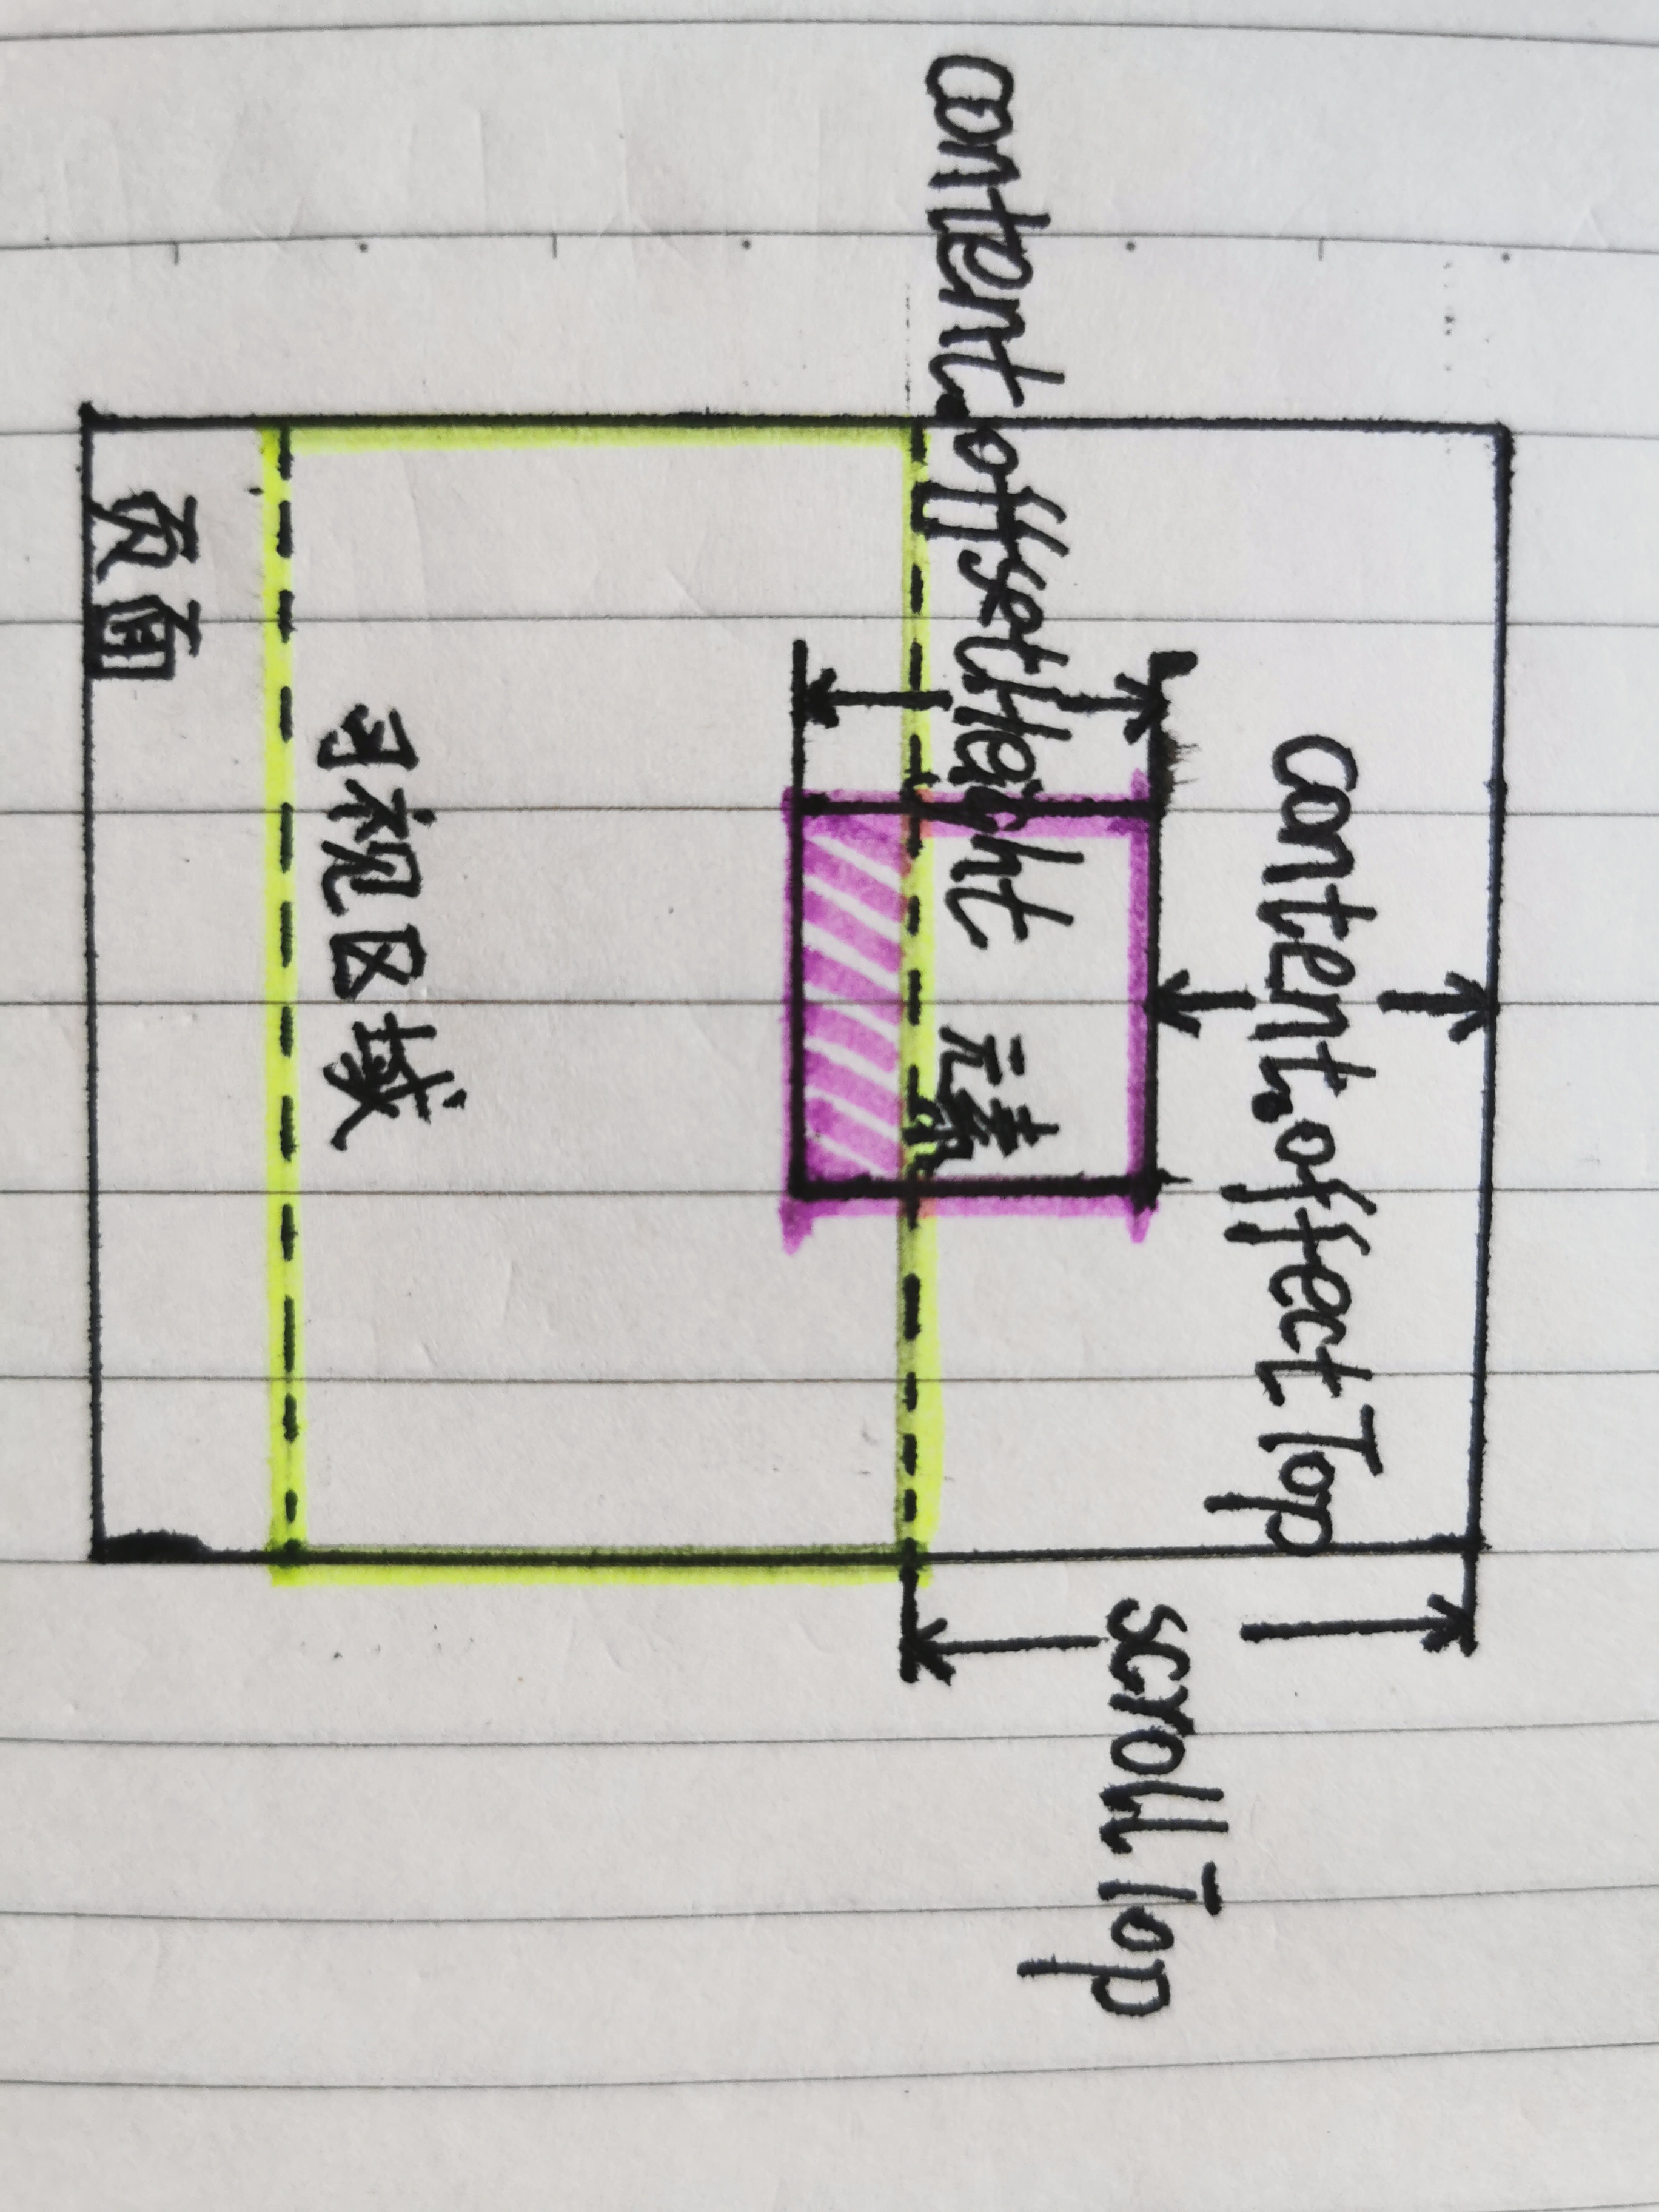 content.offectTop
scrollTop
content.offsetHeight
元素
可视区域
页面